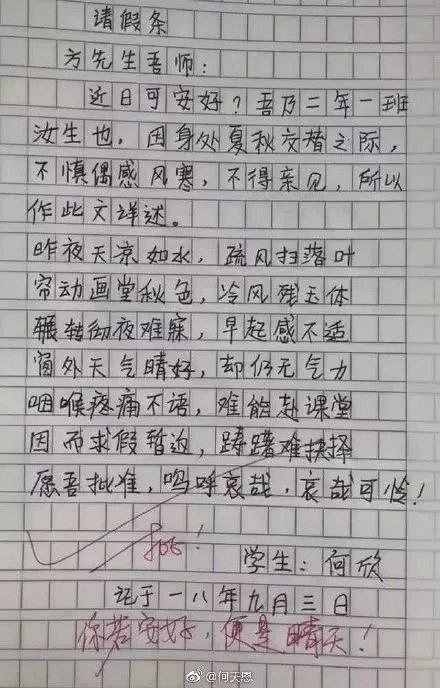 请假条
方先生吾师：
近日可安好？吾乃二年一班
汝生也，因身处夏秋交替之际，
不慎偶感风寒，不得亲见，所以
作此文详述。
昨夜天凉如水，疏风扫落叶
帘动画堂秋色，冷风残玉体
辗转彻夜难寐，早起感不适
窗外天气晴好，却仍无气力
咽喉疼痛不语，难能赴课堂
因而求假暂返，踌躇难抉择
愿吾批准，呜呼哀哉，哀哉可怜！
批！
学生：何欣
记于一八年九月三日
你若安好，便是晴天！
@何天恩